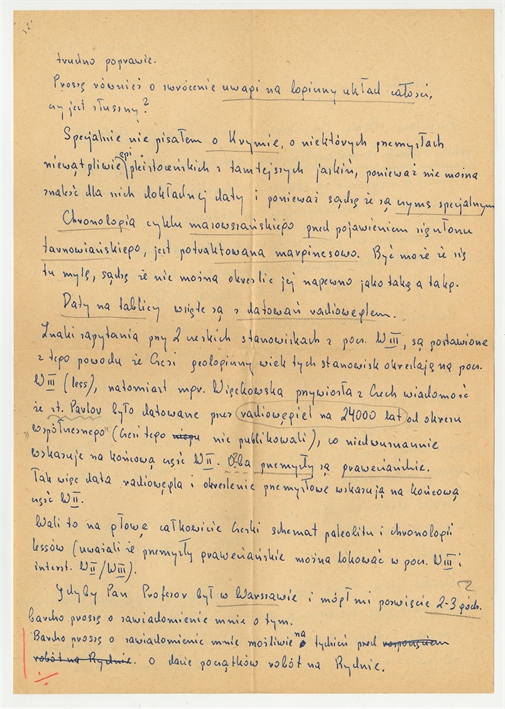 trudno poprawić.
Proszę również o zwrócenie uwagi na logiczny układ całości,
czy jest słuszny?
Specjalnie nie pisałem o Krymie, o niektórych przemysłach
niewątpliwie epi plejstoceńskich z tamtejszych jaskiń, ponieważ nie można
znaleść dla nich dokładnej daty i ponieważ sądzę że są czymś specjalnym
Chronologia cyklu mazowszańskiego przed pojawieniem się tułonu
tarnowiańskiego, jest potraktowana marginesowo. Być może że się
tu mylę, sądzę że nie można określić jej napewno jako taką a taką.
Daty na tablicy wzięte są z datowań radiowęglem.
Znaki zapytania przy 2 czeskich stanowiskach z pocz. W III, są postawione
z tego powodu że Czesi geologiczny wiek tych stanowisk określają na pocz.
W III (less), natomiast mgr. Więckowska przywiozła z Czech wiadomość
że st. Pavlov było datowane przez radiowęgiel na 24000 lat od okresu
"współczesnego" (Czesi tego nie publikowali), co niedwuznacznie
wskazuje na końcową część W II. Oba przemysły są graweciańskie.
Tak więc data radiowęgla i określenie przemysłowe wskazują na końcową
część W II.
Wali to na głowę całkowicie Czeski schemat paleolitu i chronologii
lessów (uważali że przemysły graweciańskie można lokować w pocz. W III i
interst. W II/W III).
Gdyby Pan Profesor był w Warszawie i mógł mi poświęcić 2-3 godz.
bardzo proszę o zawiadomienie mnie o tym.
Bardzo proszę o zawiadomienie mnie możliwie na tydzień przed rozpoczęciem
robót na Rydnie. o dacie początków robót na Rydnie.